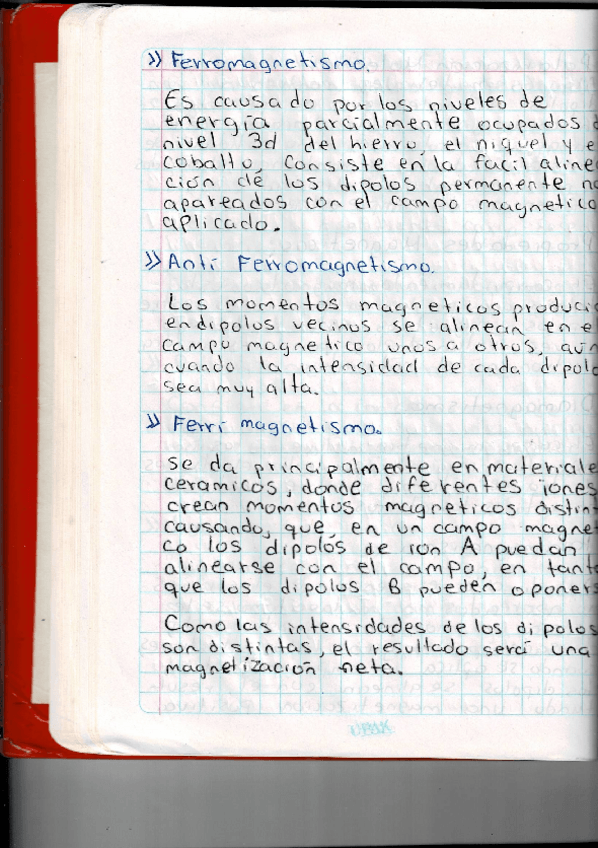 » Ferromagnetismo.
Es causado por los niveles de
energía parcialmente ocupados d
nivel 3d del hierro, el niquel y e
cobalto, consiste en la facil alinea
ción de los dipolos permanente no
apareados con el campo magnetico
aplicado.
» Anti Ferromagnetismo.
Los momentos magneticos produci
en dipolos vecinos se alinean en el
campo magnetico unos a otros, aún
cuando la intensidad de cada dipolo
sea muy alta.
» Ferri magnetismo.
se da principalmente en materiale
ceramicos, donde diferentes iones
crean momentos magneticos distin
causando, que, en un campo magnet
co los dipolos de ion A puedan
alinearse con el campo, en tanto
que los dipolos B pueden opners
Como las intensidades de los dipolos
son distintas, el resultado será una
magnetización neta.